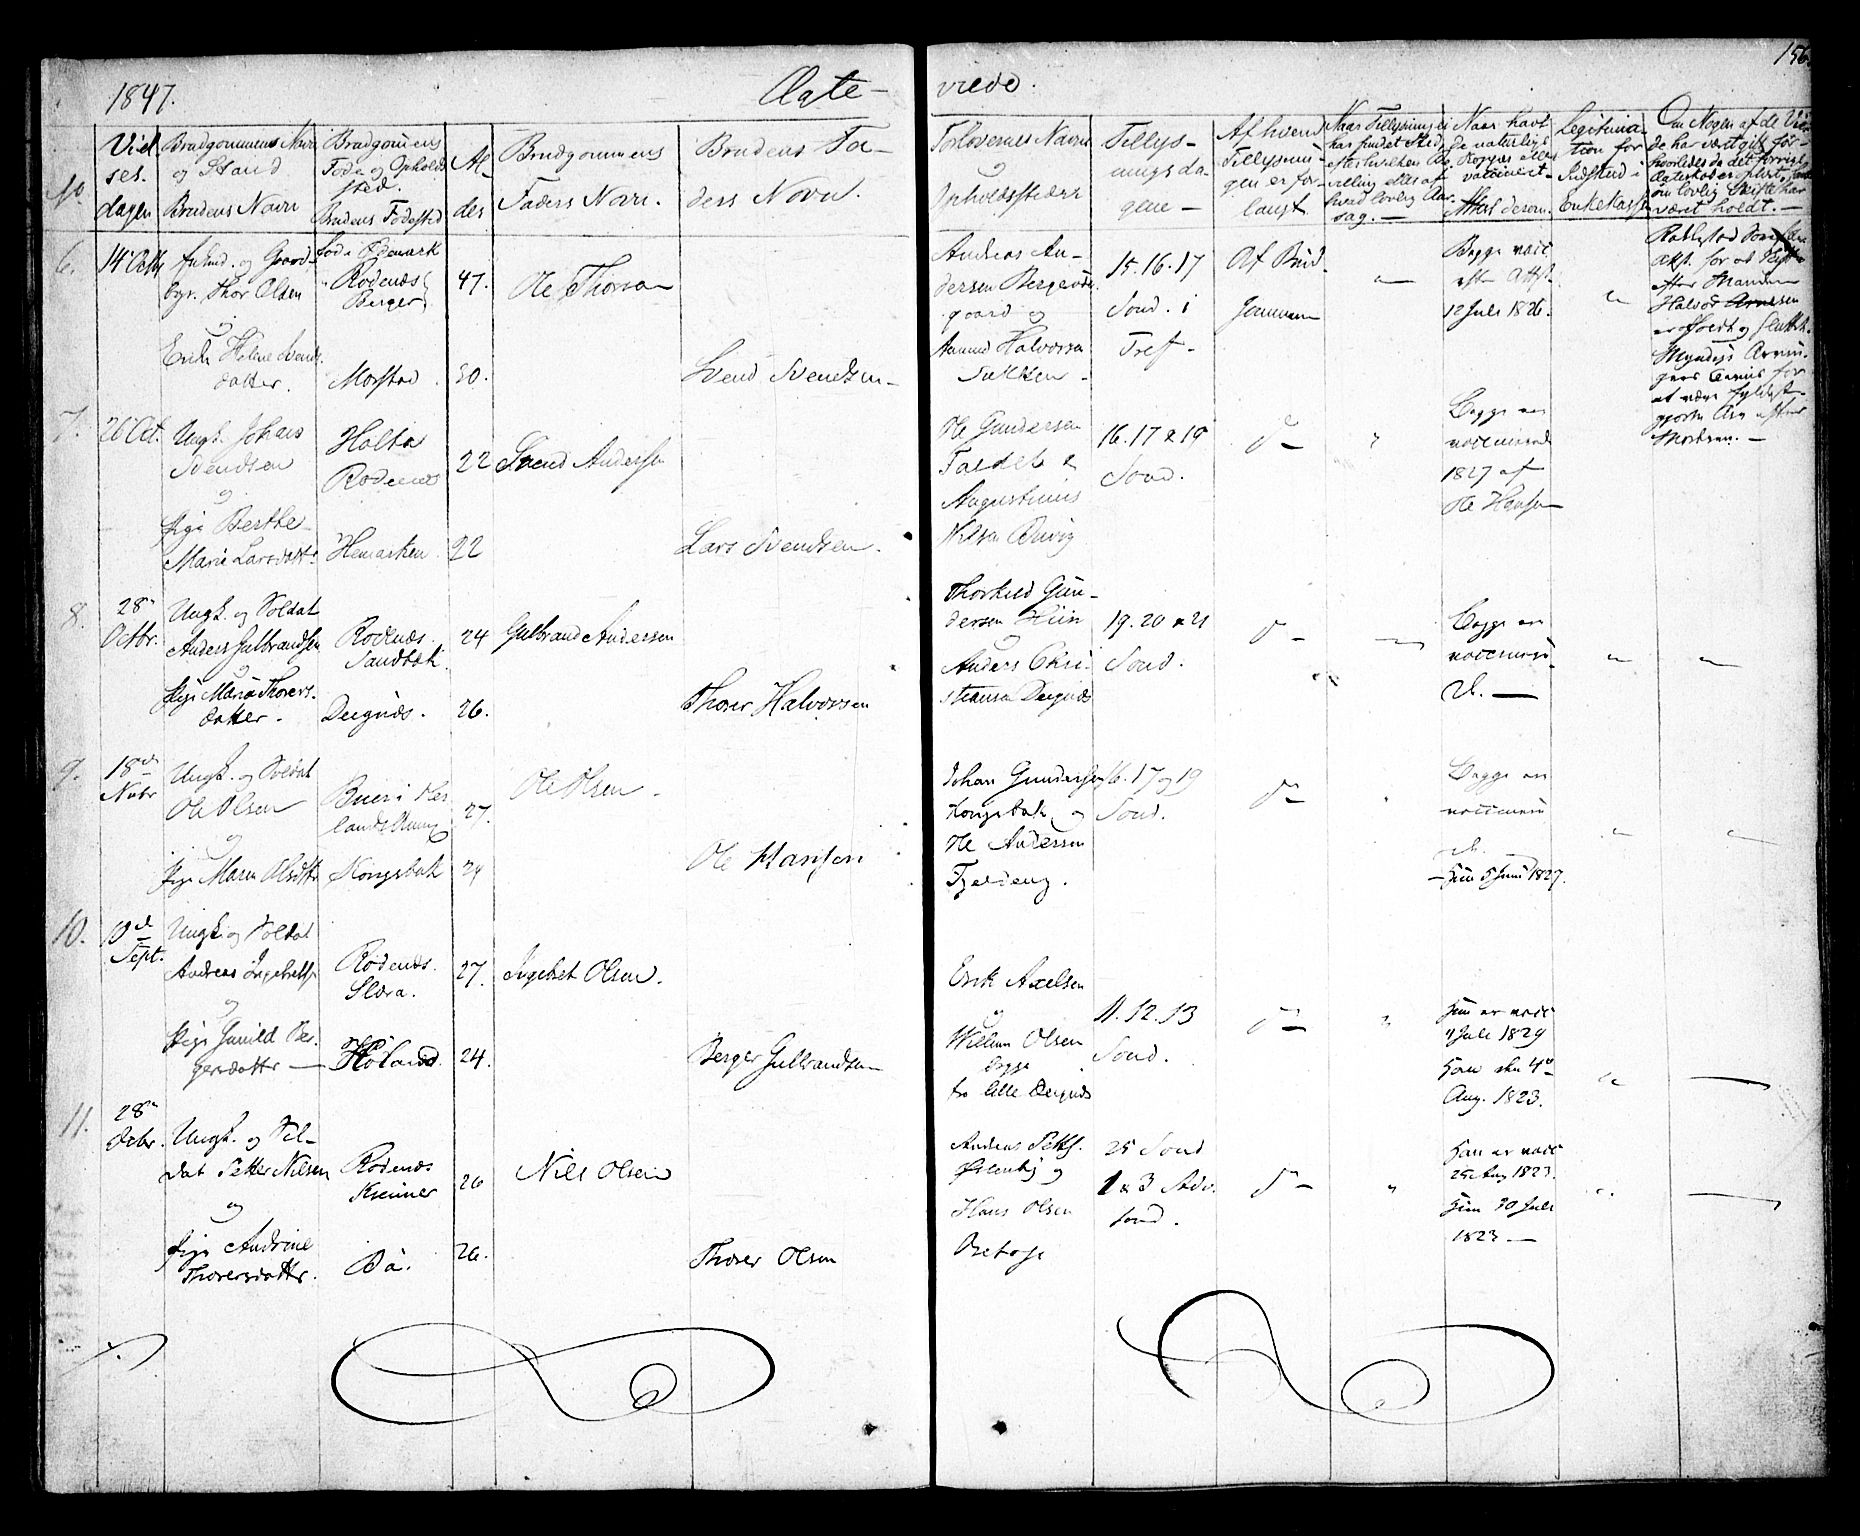 156.
1847.
Ægte-
viede.
No.
Viel
ses.
dagen
Brudgommens Navn
og Stand
Brudens Navn
Brudgomens
Føde og Opholds
sted.
Brudens Fødested
Al-
der
Brudgommens
Faders Navn.
Brudens Fa-
ders Navn.
Forlovernes Navn
og
Opholdssteder
Tillys-
nings da-
gene -
Af hvem
Tillysnin-
gen er for-
langt
Naar Tillysning ei
har fundet Sted,
efter hvilken Be-
villing eller af
hvad lovlig Aar-
sag. -
Naar havt
de naturlige
Kopper eller
vaccineret
Attest derom.
Legitima-
tion for
Indskud i
Enkekassen
Om Nogen af de Vie-
de har været gift før-
hvorledes da det forrige
Ægteskab er opløst,
om lovlig Skifte har
været holdt. -
6.
14 Octb
og Gaard-
br. Thor Olsen
og
Helene Svends-
datter.
Fød i Ødemark
Rødenæs
Berger
Morstad.
47.
30.
Ole Thorsen
Svend Svendsen -
Andreas An-
dersen Bergerøds-
gaard og
Aamund Halvorsen
15. 16. 17
Sond. i
Tref -
Af Brud-
gommen
"
Begge vacc
efter Attst.
12 Juli 1826.
"
Attst. for at Skifte
efter Manden
Halvor Arnesen
er afholdt og sluttet.
Myndige Arvin-
for
at være fyldest-
gjorte Arv efter
Moderen. -
7.
26 Oct.
Ungk. Johans
Svendsen
og
Pige Berthe
Marie Larsdattr
Holta
Rødenæs
Hemarken.
22
22
Svend Anderss
Lars Svendsen.
Ole Gundersen
Taldet &
Augustinus
Nilsen
16. 17 & 19
Sond.
d -
"
Begge er
vaccinerede
1827 af
Ole Hansen
8.
28
Octbr.
Ungk. og Soldat
Anders Gulbrandsen
og
Pige Maria Thorers-
datter.
Rødenæs.
Sandbæk.
Degnæs.
24
26.
Gulbrand Andersen
Thorer Halvorsen
Thorkild Gun-
dersen Hiin
og
Anders Chri-
stiansen Degnæs
19. 20 & 21
Sond.
d -
Begge er
vaccinere-
de. -
"
"
9.
18de
Nvbr
Ungk. og Soldat
Ole Olsen
og
Pige Maren Olsdttr
Kongsbak
27.
29
Ole Olsen.
Ole Hansen
Johan Gundersen
Kongsbak og
Ole Andersen
Fjeldeng.
16. 17 og 19
Sond.
d -
"
Begge er
vaccinere-
de.
- Hun 5 Juni 1827.
"
"
10.
10d
Sept.
Ungk. og Soldat
Andreas Ingebrets
og
Pige Gunild Ber-
gersdattr -
Rødenæs.
Slora.
Høland.
27.
24.
Ingebret Olsen.
Berger Gulbrandsen
Erik Axelsen
og
Willum Olsen
begge
fra Lille Degnæs
11. 12. 13
Sond.
d -
"
Hun er vacc
4 Juli 1829
Han den 4de
Aug. 1823.
"
-
11.
28
Octbr.
Ungk. og Sol-
dat Petter Nilsen
og
Pige Andrine
Thorersdattr.
Rødenæs
Kremner
Bø.
26
26.
Nils Olsen
Thorer Olsen
Andreas Petts.
Østenbÿ og
Hans Olsen
25 Sond
1 & 3 Adv.
Sond.
d -
"
Han er vacc
25 Aug 1823.
Hun 30 Juli
1823 -
"
-